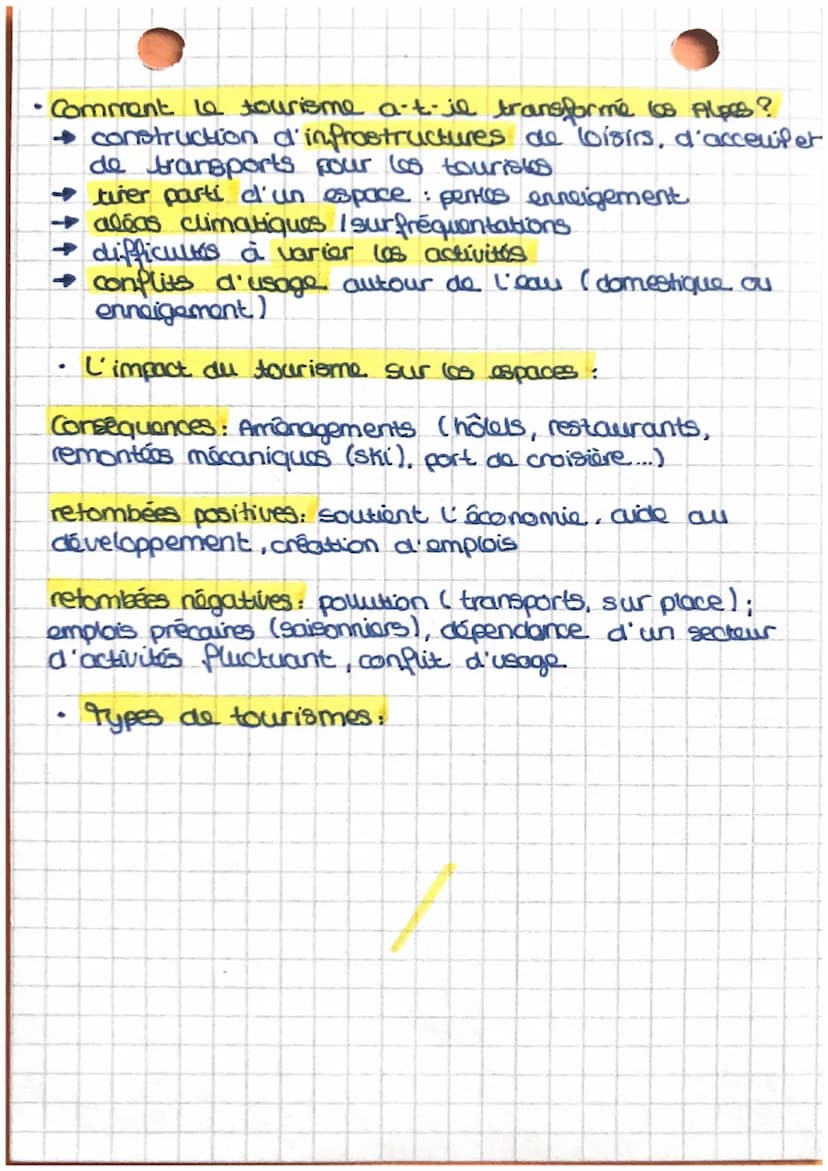 • Comment le tourisme a-t-il transformé les Alpes ?
→ construction d'infrastructures de loisirs, d'acceuil et
de transports pour les touristes
→ tirer parti d'un espace : pentes enneigement
→ aléas climatiques / surfréquentations
→ difficultés à varier les activités
→ conflits d'usage autour de l'eau (domestique ou
enneigement)
• L'impact du tourisme sur les espaces :
Conséquences : Aménagements (hôtels, restaurants,
remontées mécaniques (ski), port de croisière...)
retombées positives : soutient l'économie, aide au
développement, création d'emplois
retombées négatives : pollution (transports, sur place) ;
emplois précaires (saisonniers), dépendance d'un secteur
d'activités fluctuant, conflit d'usage
• Types de tourismes :